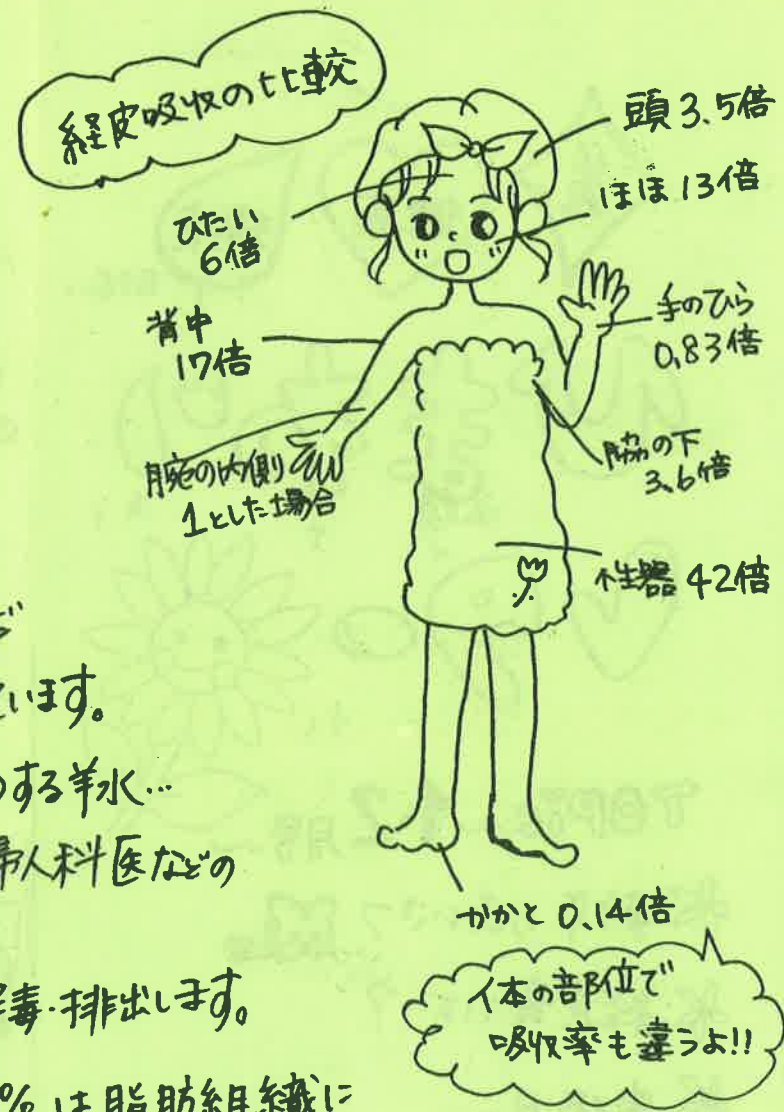 経皮吸収の比較
頭 3.5倍
ほほ 13倍
ひたい
6倍
背中
17倍
手のひら
0.83倍
腕の内側
1とした場合
脇の下
3.6倍
性器 42倍
かかと 0.14倍
体の部位で
吸収率も違うよ!!
ど
ています。
のする羊水…
婦人科医などの
解毒・排出します。
% は脂肪組織に